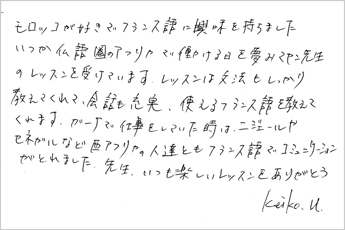 モロッコが好きでフランス語に興味を持ちました
いつか仏語圏のアフリカで働ける日を夢みてヤン先生
のレッスンを受けています。レッスンは文法もしっかり
教えてくれて、会話も充実、使えるフランス語を教えて
くれます。ガーナで仕事をしていた時は、ニジェールや
セネガルなど西アフリカの人達ともフランス語でコミュニケーション
がとれました。先生、いつも楽しいレッスンをありがとう
Keiko. U.